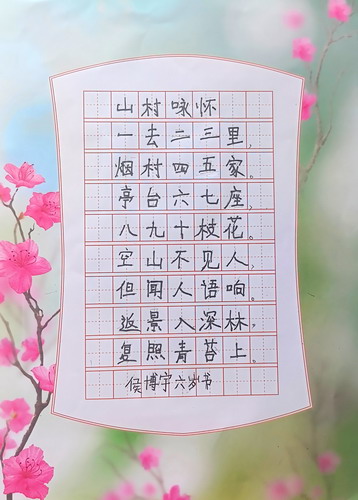 山村咏怀
一去二三里，
烟村四五家。
亭台六七座，
八九十枝花。
空山不见人，
但闻人语响。
返景入深林，
复照青苔上。
侯博宇六岁书